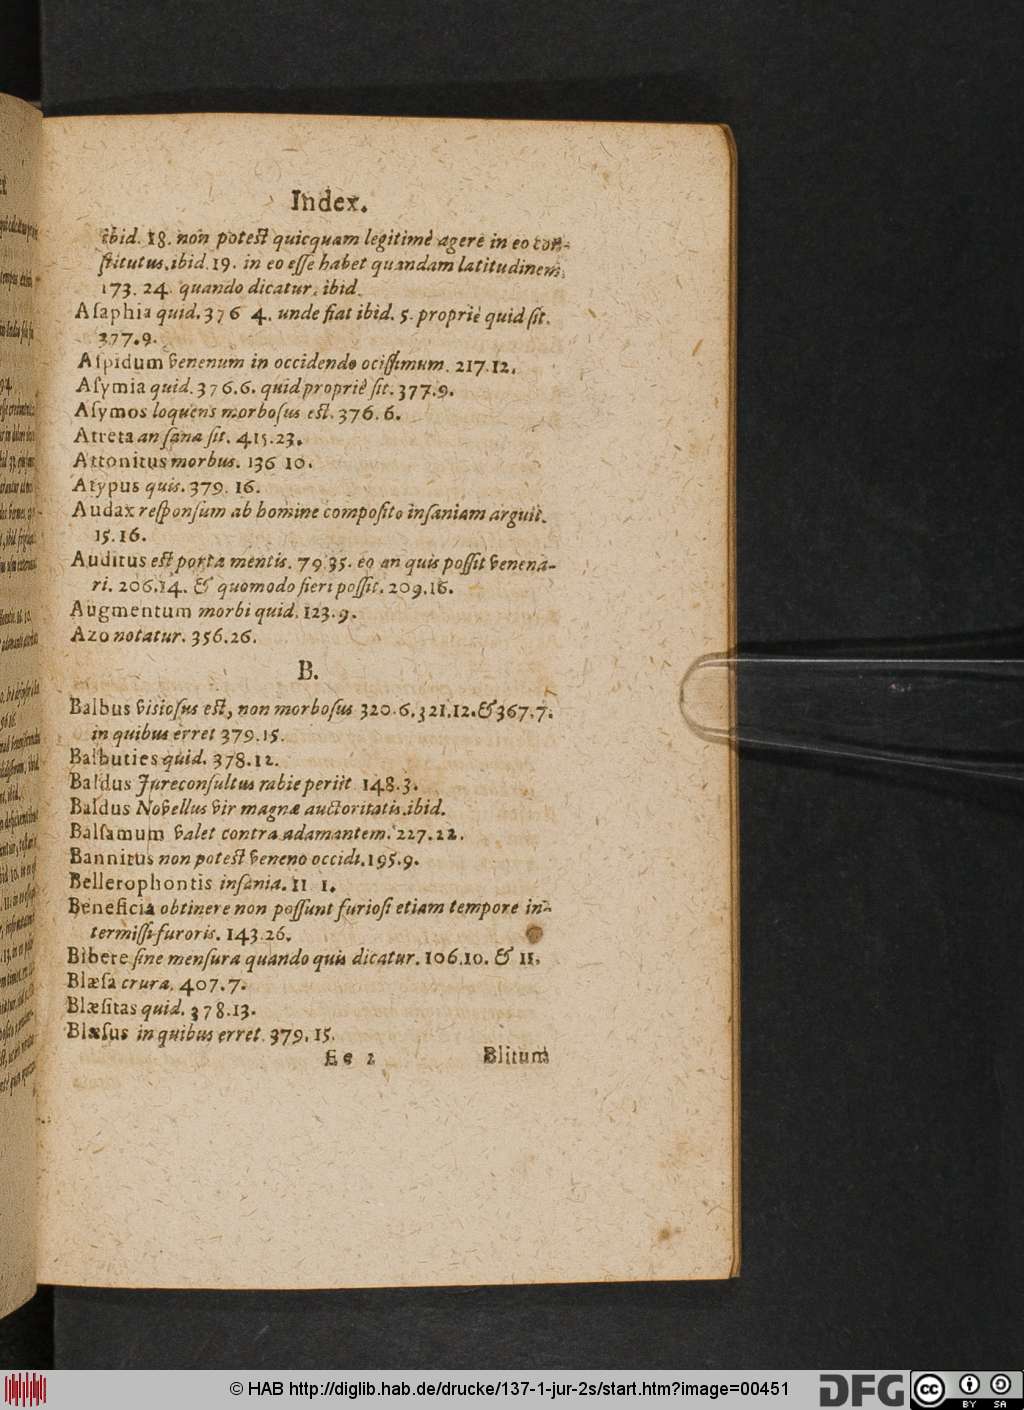 Index.
ibid. 18. non potest quicquam legitimè agere in eo con-
stitutus. ibid. 19. in eo esse habet quandam latitudinem,
173. 24. quando dicatur. ibid.
Asaphia quid. 376 4. unde fiat ibid. 5. propriè quid sit.
377.9.
Aspidum venenum in occidendo ocissimum. 217.12.
Asymia quid. 376.6. quid propriè sit. 377.9.
Asymos loquens morbosus est. 376.6.
Atreta an sana sit. 415.23.
Attonitus morbus. 136 10.
Atypus quis. 379. 16.
Audax responsum ab homine composito insaniam arguit.
15.16.
Auditus est porta mentis. 79 35. eo an quis possit venena-
ri. 206.14. & quomodo fieri possit. 209.16.
Augmentum morbi quid. 123.9.
Azo notatur. 356.26.
B.
Balbus visiosus est, non morbosus 320.6.321.12.& 367.7.
in quibus erret 379.15.
Balbuties quid. 378.12.
Baldus Jureconsultus rabie periit 148.3.
Baldus Novellus vir magnæ auctoritatis. ibid.
Balsamum valet contra adamantem. 227.22.
Bannitus non potest veneno occidi. 195.9.
Bellerophontis insania. 11 1.
Beneficia obtinere non possunt furiosi etiam tempore in-
termissi furoris. 143.26.
Bibere sine mensura quando quis dicatur. 106.10. & 11.
Blæsa crura. 407.7.
Blæsitas quid. 378.13.
Blæsus in quibus erret. 379.15.
Ee 2 Blitum
© HAB http://diglib.hab.de/drucke/137-1-jur-2s/start.htm?image=00451 DFG cc BY SA